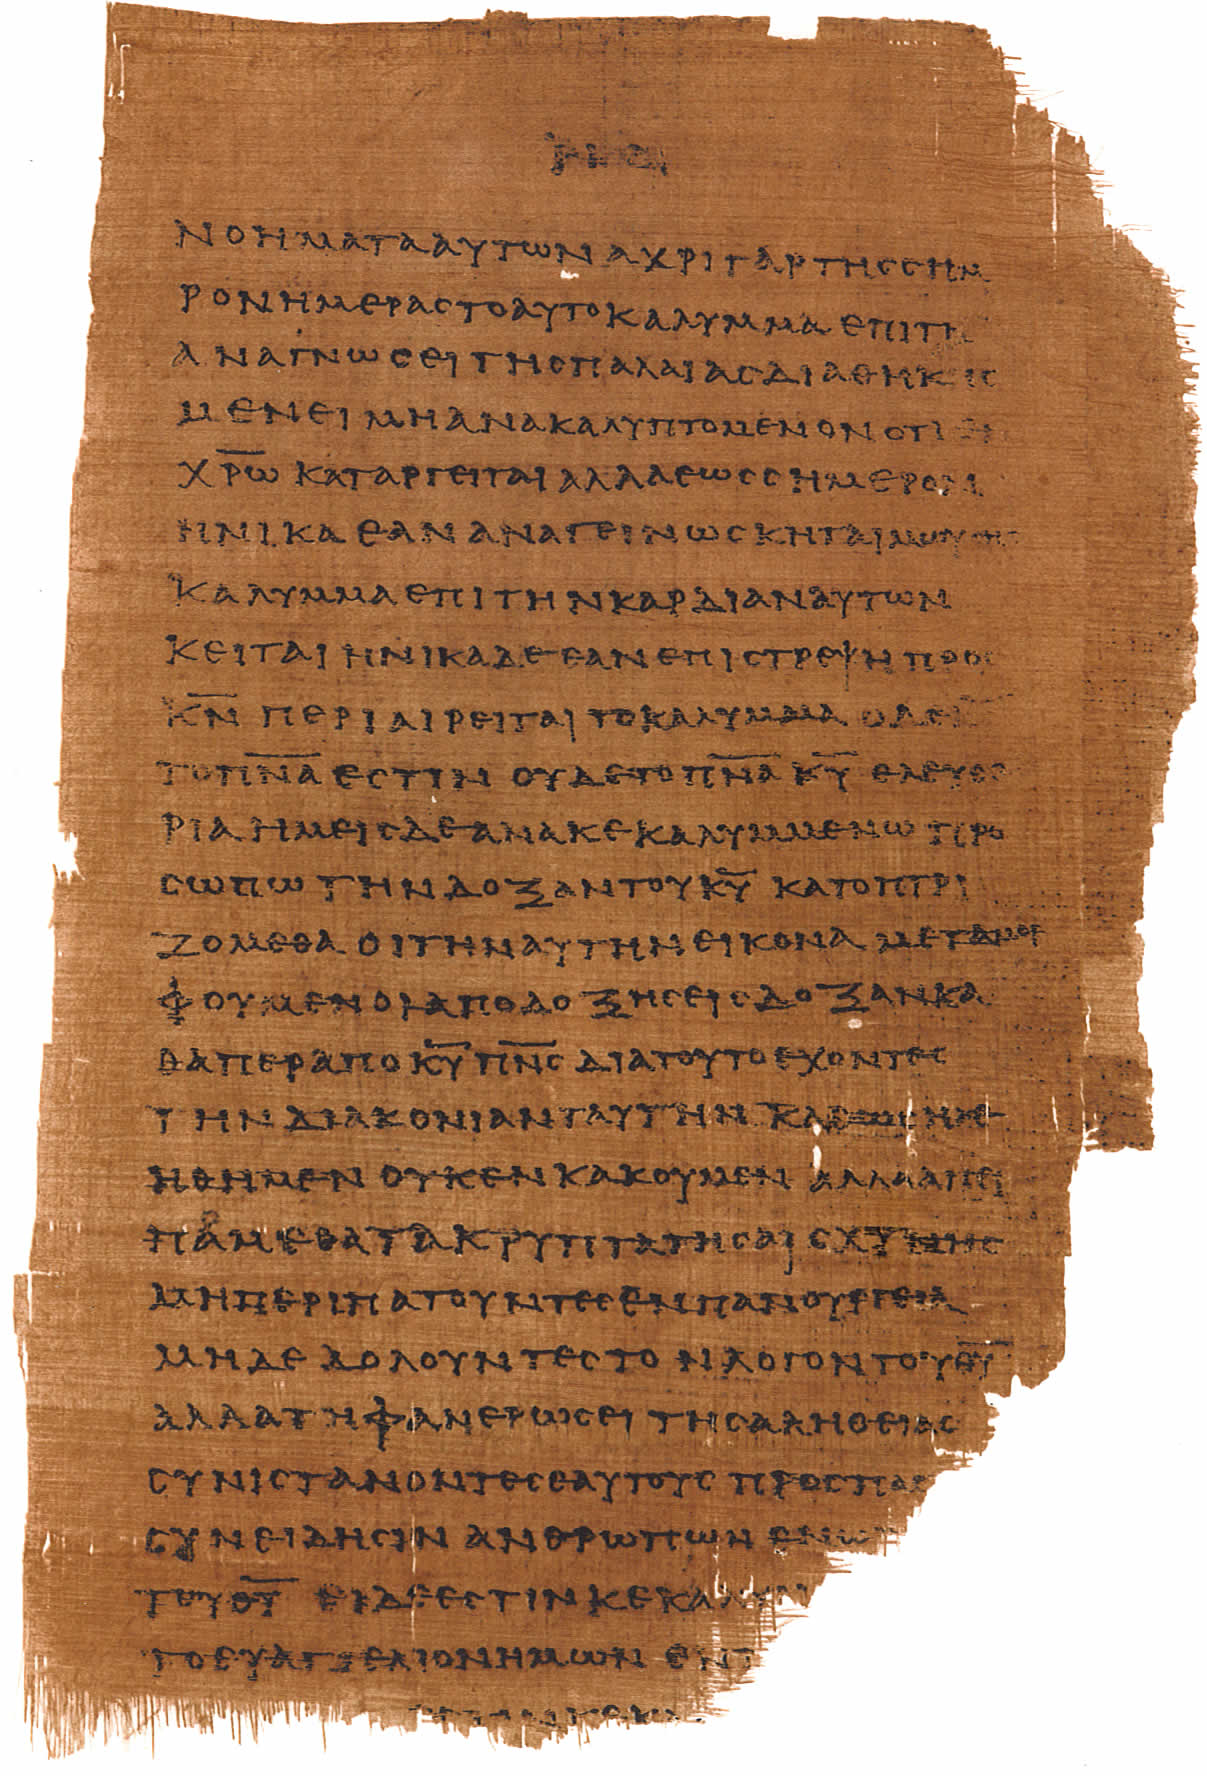 ΝΟΗΜΑΤΑΑΥΤΩΝΑΧΡΙΓΑΡΤΗϹϹΗΜ
ΡΟΝΗΜΕΡΑϹΤΟΑΥΤΟΚΑΛΥΜΜΑΕΠΙΤΗ
ΑΝΑΓΝΩϹΕΙΤΗϹΠΑΛΑΙΑϹΔΙΑΘΗΚΗϹ
ΜΕΝΕΙΜΗΑΝΑΚΑΛΥΠΤΟΜΕΝΟΝΟΤΙΕΝ
Χ̅Ρ̅Ω̅ ΚΑΤΑΡΓΕΙΤΑΙΑΛΛΑΕΩϹϹΗΜΕΡΟΝ
ΗΝΙΚΑΕΑΝΑΝΑΓΕΙΝΩϹΚΗΤΑΙΜΩΥϹΗϹ
ΚΑΛΥΜΜΑΕΠΙΤΗΝΚΑΡΔΙΑΝΑΥΤΩΝ
ΚΕΙΤΑΙΗΝΙΚΑΔΕΕΑΝΕΠΙϹΤΡΕΨΗΠΡΟϹ
Κ̅Ν̅ ΠΕΡΙΑΙΡΕΙΤΑΙΤΟΚΑΛΥΜΜΑ ΟΔΕΚ̅Ϲ̅
ΤΟΠ̅Ν̅Α̅ ΕϹΤΙΝ ΟΥΔΕΤΟΠ̅Ν̅Α̅ Κ̅Υ̅ ΕΛΕΥΘΕ
ΡΙΑΗΜΕΙϹΔΕΑΝΑΚΕΚΑΛΥΜΜΕΝΩ ΠΡΟ
ϹΩΠΩ ΤΗΝΔΟΞΑΝΤΟΥΚ̅Υ̅ ΚΑΤΟΠΤΡΙ
ΖΟΜΕΘΑ ΟΙΤΗΝΑΥΤΗΝΕΙΚΟΝΑ ΜΕΤΑΜΟΡ
ΦΟΥΜΕΝΟΙΑΠΟΔΟΞΗϹΕΙϹΔΟΞΑΝΚΑ
ΘΑΠΕΡΑΠΟΚ̅Υ̅Π̅Ν̅Ϲ̅ ΔΙΑΤΟΥΤΟΕΧΟΝΤΕϹ
ΤΗΝΔΙΑΚΟΝΙΑΝΤΑΥΤΗΝ ΚΑΘΩϹΗΛΕ
ΗΘΗΜΕΝ ΟΥΚΕΝΚΑΚΟΥΜΕΝ ΑΛΛΑΑΠΕΙ
ΠΑΜΕΘΑΤΑΚΡΥΠΤΑΤΗϹΑΙϹΧΥΝΗϹ
ΜΗΠΕΡΙΠΑΤΟΥΝΤΕϹΕΝΠΑΝΟΥΡΓΕΙΑ
ΜΗΔΕ ΔΟΛΟΥΝΤΕϹΤΟΝΛΟΓΟΝΤΟΥΘ̅Υ̅
ΑΛΛΑΤΗΦΑΝΕΡΩϹΕΙ ΤΗϹΑΛΗΘΕΙΑϹ
ϹΥΝΙϹΤΑΝΟΝΤΕϹΕΑΥΤΟΥϹ ΠΡΟϹΠΑϹ
ϹΥΝΕΙΔΗϹΙΝ ΑΝΘΡΩΠΩΝ ΕΝΩΠ
ΤΟΥΘ̅Υ̅ ΕΙΔΕΕϹΤΙΝΚΕΚΑΛΥΜ
ΤΟΕΥΑΓΓΕΛΙΟΝΗΜΩΝ ΕΝΤ